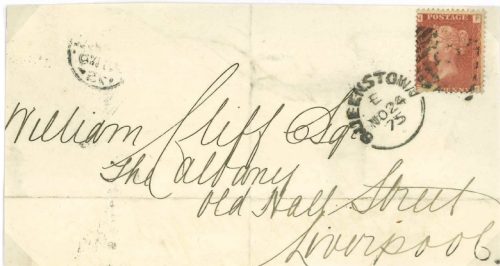 POSTAGE
QUEENSTOWN
E
NO 24
75
William Cliff Esqr
The Albany
Old Hall Street
Liverpool.